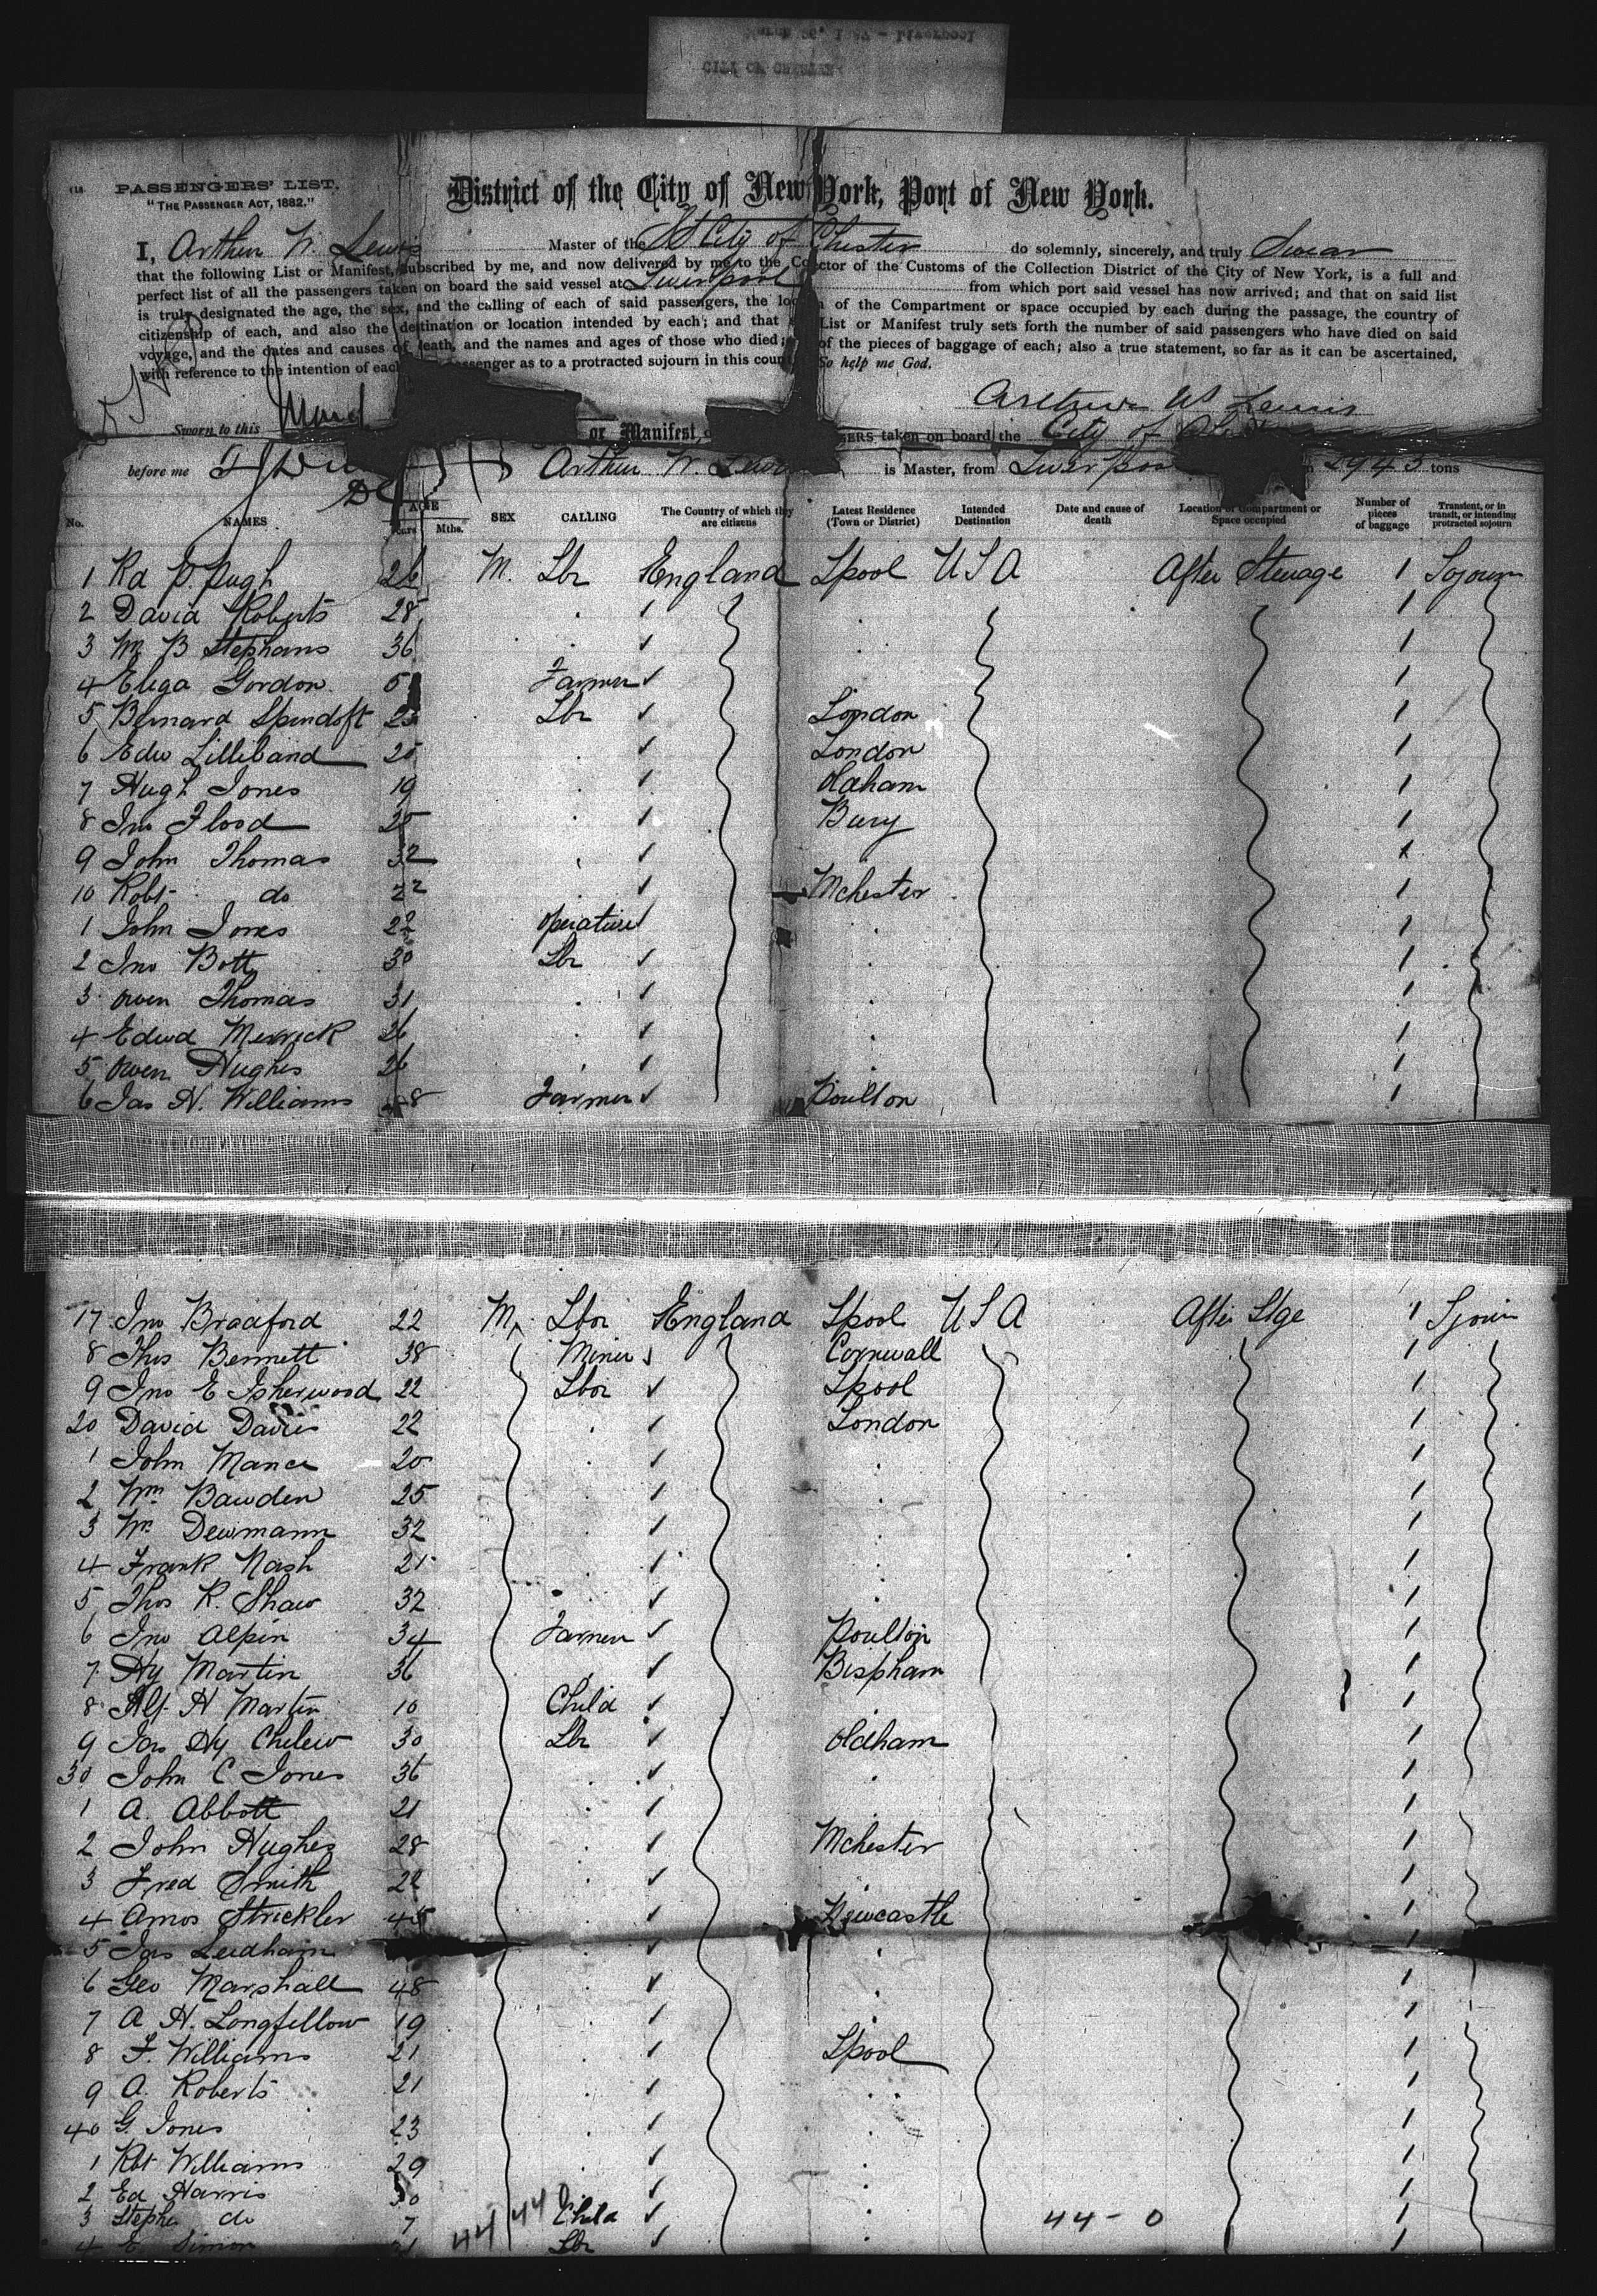 Liverpool
CITY OF CHESTER
PASSENGERS' LIST.
"THE PASSENGER ACT, 1882."
District of the City of New York, Port of New York.
I, Arthur W. Lewis Master of the SS City of Chester do solemnly, sincerely, and truly Swear
that the following List or Manifest, subscribed by me, and now delivered by me to the Collector of the Customs of the Collection District of the City of New York, is a full and
perfect list of all the passengers taken on board the said vessel at Liverpool from which port said vessel has now arrived; and that on said list
is truly designated the age, the sex, and the calling of each of said passengers, the loc n of the Compartment or space occupied by each during the passage, the country of
citizenship of each, and also the destination or location intended by each; and that List or Manifest truly sets forth the number of said passengers who have died on said
voyage, and the dates and causes of death, and the names and ages of those who died; of the pieces of baggage of each; also a true statement, so far as it can be ascertained,
with reference to the intention of each ssenger as to a protracted sojourn in this coun So help me God.
Arthur W Lewis
Sworn to this
or Manifest, GERS taken on board the City of
before me Arthur W. Lewis is Master, from Liverpoo 2943 tons
No. NAMES AGE Years Mths. SEX CALLING The Country of which they are citizens Latest Residence (Town or District) Intended Destination Date and cause of death Location of Compartment or Space occupied Number of pieces of baggage Transient, or in transit, or intending protracted sojourn
1 Rd P. Pugh 26 M. Lbr England Lpool U S A After Steerage 1 Sojourn
2 David Roberts 28 1
3 W B Stephans 36 1
4 Eliga Gordon 5 Farmer 1
5 Bernard Spindoft 23 Lbr London 1
6 Edw Lilleband 25 London 1
7 Hugh Jones 19 Oldham 1
8 Jno Flood 25 Bury 1
9 John Thomas 32 1
10 Robt do 22 Mchester 1
1 John Jones 22 Operative 1
2 Jno Bott 30 Lbr 1
3 Owen Thomas 31 1
4 Edwd Merrick 26 1
5 Owen Hughes 26 1
6 Jas H. Williams 48 Farmer Poulton 1
17 Jno Bradford 22 M Lbor England Lpool U S A After Stge 1 Sjourn
8 Thos Bennett 38 Miner Cornwall 1
9 Jno E Isherwood 22 Lbor Lpool 1
20 David Davies 22 London 1
1 John Mance 20 1
2 Wm Bawden 25 1
3 Wm Dewmann 32 1
4 Frank Nash 21 1
5 Thos R. Shaw 32 1
6 Jno Alpin 34 Farmer Poulton 1
7 Hy Martin 36 Bispham 1
8 Alf. H Martin 10 Child 1
9 Jas Hy Chilew 30 Lbr Oldham 1
30 John C Jones 36 1
1 A. Abbott 21 1
2 John Hughes 28 Mchester 1
3 Fred Smith 22 1
4 Amos Strickler 45 Newcastle 1
5 Jas Leedham 1
6 Geo Marshall 48 1
7 A H. Longfellow 19 1
8 F. Williams 21 Lpool 1
9 A. Roberts 21 1
40 G. Jones 23 1
1 Rbt Williams 29 1
2 Ed Harris 30 1
3 Stephe do 7 44 44 Child 44 - 0 1
4 E. Simon 21 Lbr 1